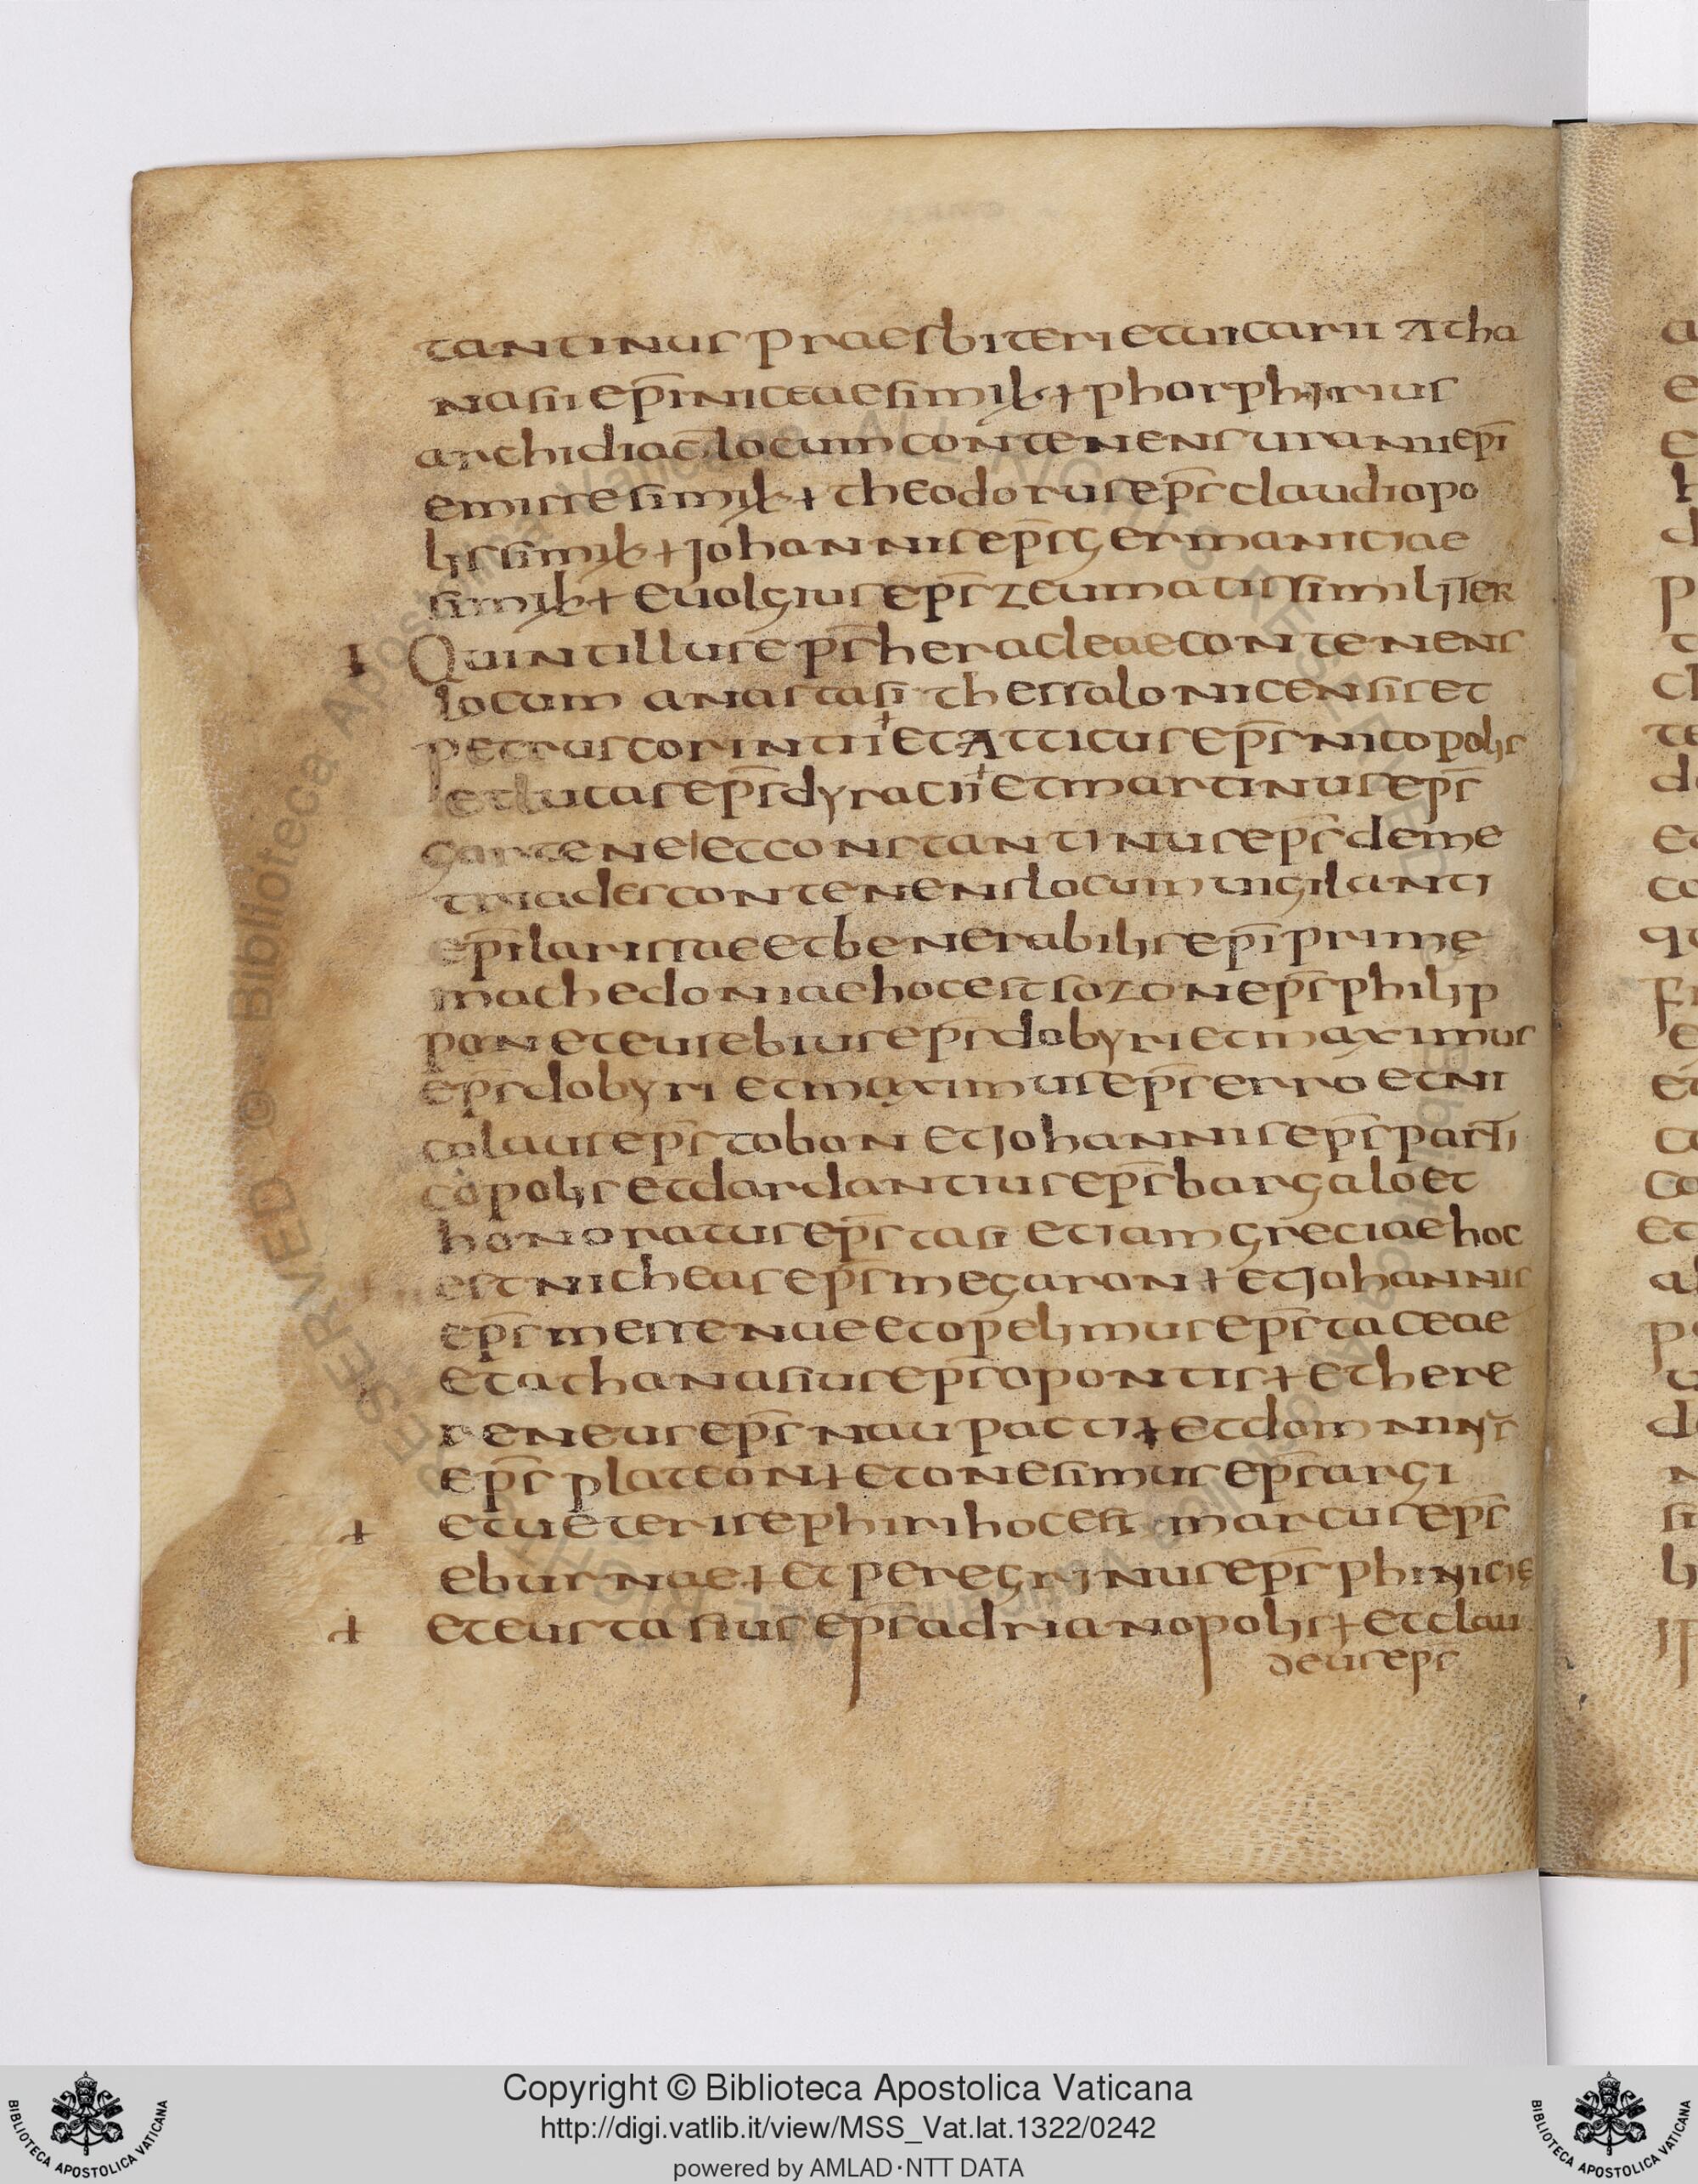 tantinus praesbiteri et uicarii Atha
nasii ep̄i niceae simil̵ + phorphirius
archidiac̄ locum contenens uranii ep̄i
emisse simil̵ + theodorus ep̄s claudiopo
lis simil̵ + johannis ep̄s germaniciae
simil̵ + euolgius ep̄s zeumatis similiter
Quintillus ep̄s heracleae contenens
locum anastasii thessalonicensis et
petrus corintii + et Atticus ep̄s nicopolis
et lucas ep̄s dyracii + et martinus ep̄s
gortenei et constantinus ep̄s deme
triades contenens locum uigilanti
ep̄i larissae et benerabilis ep̄i primę
machedoniae hoc est sozon ep̄s philip
pon et eusebius ep̄s dobyri et maximus
ep̄s dobyri et maximus ep̄s serro et ni
colaus ep̄s tobon et johannis ep̄s parti
copolis et dardantius ep̄s bargalo et
honoratus ep̄s tasi etiam greciae hoc
est nicheas ep̄s megaron + et johannis
ep̄s messenae et opelimus ep̄s taceae
et athanasius ep̄s opontis + et here
reneus ep̄s naupacti + et domninus
ep̄s plateon + et onesimus ep̄s argi
+ et ueteris ephiri hoc est marcus ep̄s
eburnae + et peregrinus ep̄s phinicię
+ et eustasius ep̄s adrianopolis + et clau
deus eps
Copyright © Biblioteca Apostolica Vaticana
http://digi.vatlib.it/view/MSS_Vat.lat.1322/0242
powered by AMLAD·NTT DATA
BIBLIOTECA APOSTOLICA VATICANA
BIBLIOTECA APOSTOLICA VATICANA